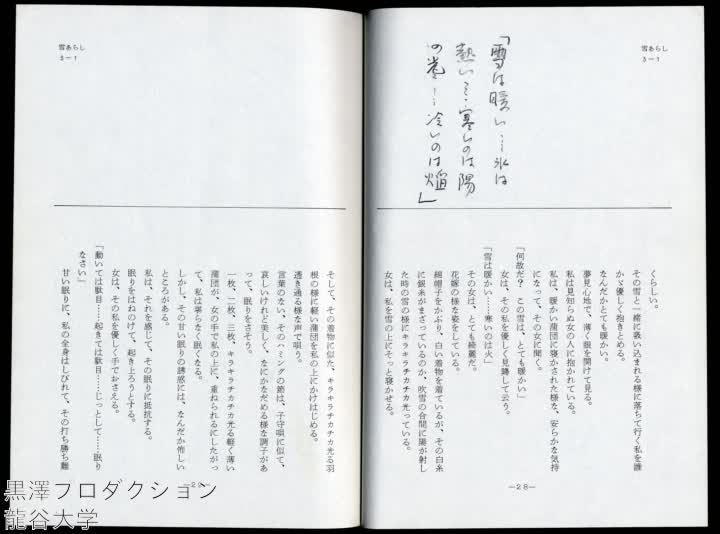 雪あらし
3−1
「雪は暖い…氷は
熱い…寒いのは陽
の光…冷いのは焔」
くらしい。
その雪と一緒に襲い込まれる様に落ちて行く私を誰
かゞ優しく抱きとめる。
なんだかとても暖かい。
夢見心地で、薄く眼を開けて見る。
私は見知らぬ女の人に抱かれている。
私は、暖かい蒲団に寝かされた様な、安らかな気持
になって、その女に聞く。
「何故だ？　この雪は、とても暖かい」
女は、その私を優しく見詰して云う。
「雪は暖かい……寒いのは火」
その女は、とても綺麗だ。
花嫁の様な姿をしている。
綿帽子をかぶり、白い着物を着ているが、その白糸
に銀糸がまざっているのか、吹雪の合間に陽が射し
た時の雪の様にキラキラチカチカ光っている。
女は、私を雪の上にそっと寝かせる。
−28−
雪あらし
3−1
そして、その着物に似た、キラキラチカチカ光る羽
根の様に軽い蒲団を私の上にかけはじめる。
透き通る様な声で唄う。
言葉のない、そのハミングの節は、子守唄に似て、
哀しいけれど美しく、なにかなだめる様な調子があ
って、眠りをさそう。
一枚、二枚、三枚、キラキラチカチカ光る軽く薄い
蒲団が、女の手で私の上に、重ねられるにしたがっ
て、私は堪らなく眠くなる。
しかし、その甘い眠りの誘惑には、なんだか怖しい
ところがある。
私は、それを感じて、その眠りに抵抗する。
眠りをはねのけて、起き上ろうとする。
女は、その私を優しく手でおさえる。
「動いては駄目……起きては駄目……じっとして……眠り
なさい」
甘い眠りに、私の全身はしびれて、その打ち勝ち難
−29−
黒澤プロダクション
龍谷大学